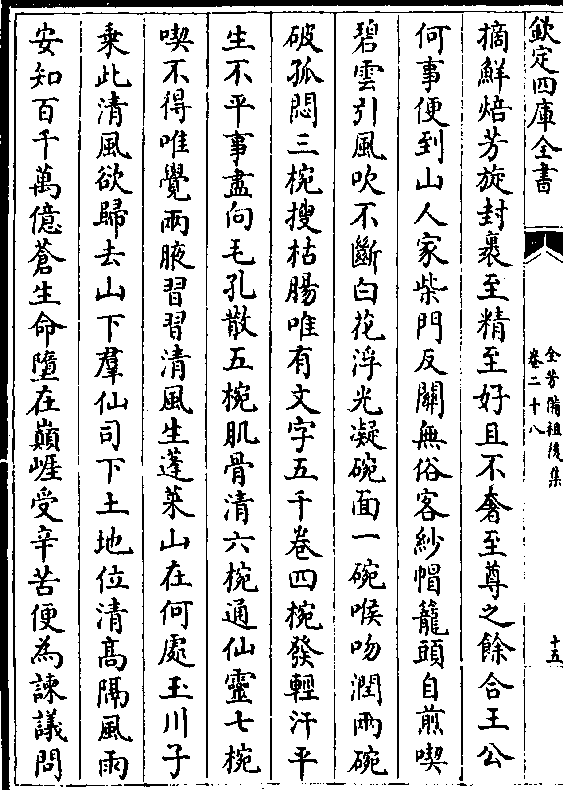 欽定四庫全書
全芳備祖後集
卷二十八
十五
摘鮮焙芳旋封裹至精至好且不奢至尊之餘合王公
何事便到山人家柴門反關無俗客紗帽籠頭自煎喫
碧雲引風吹不斷白花浮光凝碗面一碗喉吻潤兩碗
破孤悶三椀搜枯腸唯有文字五千卷四椀發輕汗平
生不平事盡向毛孔散五椀肌骨清六椀通仙靈七椀
喫不得唯覺兩腋習習清風生蓬萊山在何處玉川子
乗此清風欲歸去山下羣仙司下土地位清髙隔風雨
安知百千萬億蒼生命墮在巔崕受辛苦便為諫議問